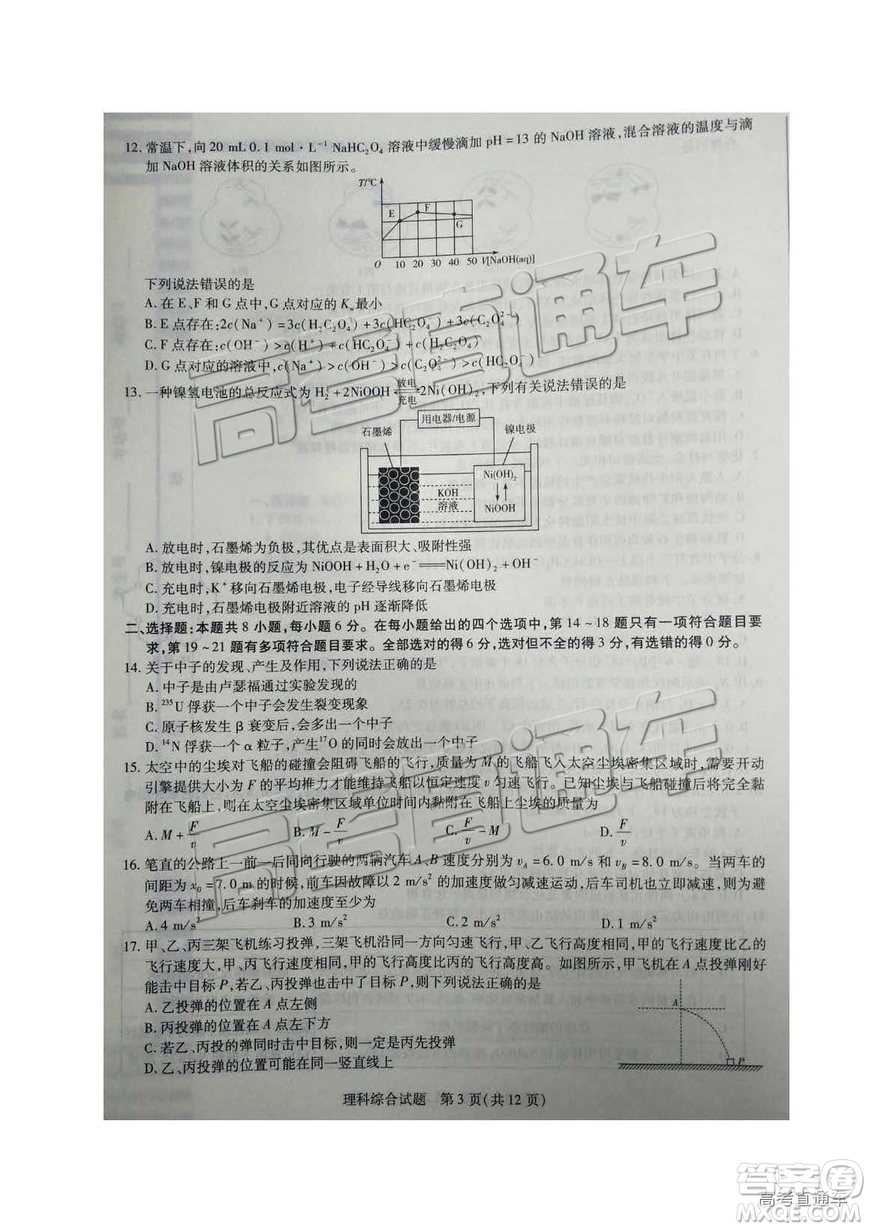 12. 常温下,向 20 mL 0.1 mol·L⁻¹ NaHC₂O₄ 溶液中缓慢滴加 pH=13 的 NaOH 溶液,混合溶液的温度与滴
加 NaOH 溶液体积的关系如图所示。
T/℃
E F
G
O 10 20 30 40 50 V[NaOH(aq)]
下列说法错误的是
A. 在 E、F 和 G 点中,G 点对应的 Kw 最小
B. E 点存在:2c(Na⁺)=3c(H₂C₂O₄)+3c(HC₂O₄⁻)+3c(C₂O₄²⁻)
C. F 点存在:c(OH⁻)>c(H⁺)+c(HC₂O₄⁻)+c(H₂C₂O₄)
D. G 点对应的溶液中,c(Na⁺)>c(OH⁻)>c(C₂O₄²⁻)>c(HC₂O₄⁻)>c(H⁺)
13. 一种镍氢电池的总反应式为 H₂+2NiOOH ⇌(放电/充电) 2Ni(OH)₂,下列有关说法错误的是
用电器/电源
石墨烯 镍电极
Ni(OH)₂
KOH
溶液
NiOOH
A. 放电时,石墨烯为负极,其优点是表面积大、吸附性强
B. 放电时,镍电极的反应为 NiOOH+H₂O+e⁻══Ni(OH)₂+OH⁻
C. 充电时,K⁺移向石墨烯电极,电子经导线移向石墨烯电极
D. 充电时,石墨烯电极附近溶液的 pH 逐渐降低
二、选择题:本题共 8 小题,每小题 6 分。在每小题给出的四个选项中,第 14~18 题只有一项符合题目要
求,第 19~21 题有多项符合题目要求。全部选对的得 6 分,选对但不全的得 3 分,有选错的得 0 分。
14. 关于中子的发现、产生及作用,下列说法正确的是
A. 中子是由卢瑟福通过实验发现的
B. ²³⁵U 俘获一个中子会发生裂变现象
C. 原子核发生 β 衰变后,会多出一个中子
D. ¹⁴N 俘获一个 α 粒子,产生¹⁷O 的同时会放出一个中子
15. 太空中的尘埃对飞船的碰撞会阻碍飞船的飞行,质量为 M 的飞船飞入太空尘埃密集区域时,需要开动
引擎提供大小为 F 的平均推力才能维持飞船以恒定速度 v 匀速飞行。已知尘埃与飞船碰撞后将完全黏
附在飞船上,则在太空尘埃密集区域单位时间内黏附在飞船上尘埃的质量为
A. M+F/v B. M−F/v C. F/v−M D. F/v
16. 笔直的公路上一前一后同向行驶的两辆汽车 A、B 速度分别为 v_A=6.0 m/s 和 v_B=8.0 m/s。当两车的
间距为 x₀=7.0 m 的时候,前车因故障以 2 m/s² 的加速度做匀减速运动,后车司机也立即减速,则为避
免两车相撞,后车刹车的加速度至少为
A. 4 m/s² B. 3 m/s² C. 2 m/s² D. 1 m/s²
17. 甲、乙、丙三架飞机练习投弹,三架飞机沿同一方向匀速飞行,甲、乙飞行高度相同,甲的飞行速度比乙的
飞行速度大,甲、丙飞行速度相同,甲的飞行高度比丙的飞行高度高。如图所示,甲飞机在 A 点投弹刚好
能击中目标 P,若乙、丙投弹也击中了目标 P,则下列说法正确的是
A. 乙投弹的位置在 A 点左侧
B. 丙投弹的位置在 A 点左下方
C. 若乙、丙投的弹同时击中目标,则一定是丙先投弹
D. 乙、丙投弹的位置可能在同一竖直线上
A
P
理科综合试题 第 3 页(共 12 页)
高考直通车
高考直通车
答案圈
高考直通车
MXQE.COM